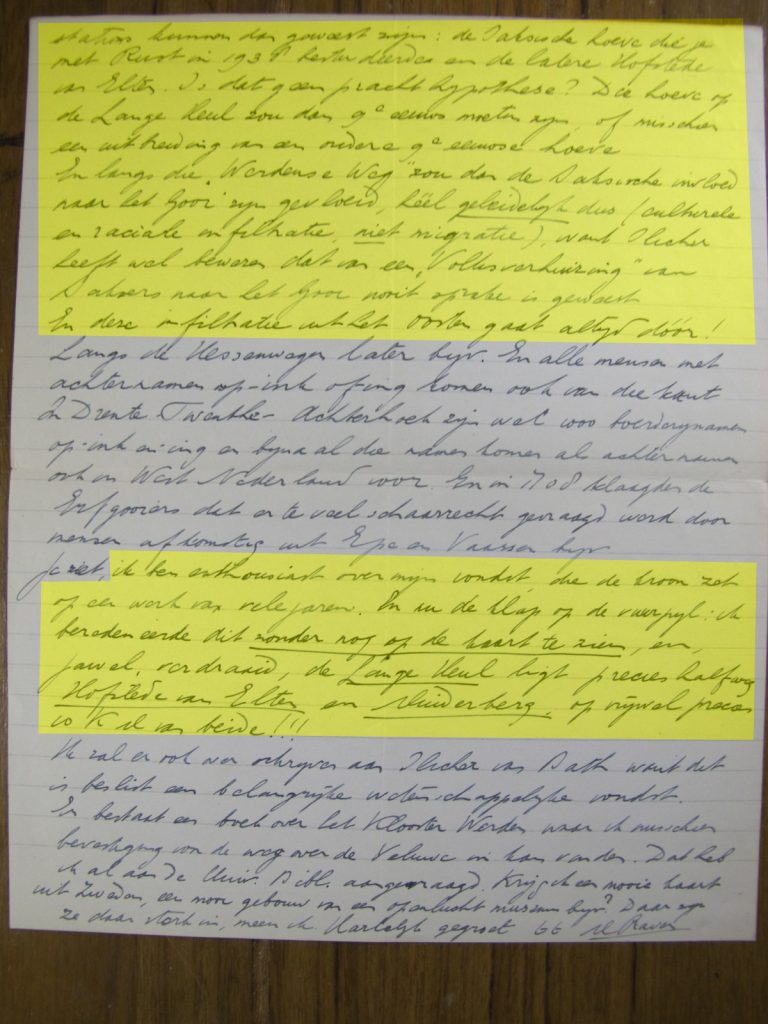 stations kunnen dan geweest zijn: de Saksische hoeve die je
met Rust in 1938 bestudeerde en de latere Hofstede
van Elten. Is dat geen pracht hypothese? Die hoeve op
de Lange Heul zou dan 9e eeuws moeten zijn, of misschien
een uitbreiding van een oudere 9e eeuwse hoeve
En langs die "Werdense Weg" zou dan de Saksische invloed
naar het Gooi zijn gevloeid, héél geleidelijk dus (culturele
en raciale infiltratie, niet migratie), want Slicher
heeft wel bewezen dat van een "Volksverhuizing" van
Saksers naar het Gooi nooit sprake is geweest
En deze infiltratie uit het oosten gaat altijd dóór!
Langs de Hessenwegen later bijv. En alle mensen met
achternamen op -ink of -ing komen ook van die kant
In Drente - Twenthe - Achterhoek zijn wel 1000 boerderijnamen
op -ink en -ing en bijna al die namen komen als achternamen
ook in West Nederland voor. En in 1708 klaagden de
Erfgooiers dat er te veel schaarrecht gevraagd werd door
mensen afkomstig uit Epe en Vaassen bijv.
Je ziet, ik ben enthousiast over mijn vondst, die de kroon zet
op een werk van vele jaren. En nu de klap op de vuurpijl: ik
beredeneerde dit zonder nog op de kaart te zien, en,
jawel, verdraaid, de Lange Heul ligt precies halfweg
Hofstede van Elten en Muiderberg, op vrijwel precies
10 K.M van beide!!!
Ik zal er ook over schrijven aan Slicher van Bath want dit
is beslist een belangrijke wetenschappelijke vondst.
Er bestaat een boek over het Klooster Werden waar ik misschien
bevestiging van de weg over de Veluwe in kan vinden. Dat heb
ik al aan de Univ. Bibl. aangevraagd. Krijg ik een mooie kaart
uit Zweden, een mooi gebouw van een openlucht museum bijv? Daar zijn
ze daar sterk in, meen ik. Hartelijk gegroet